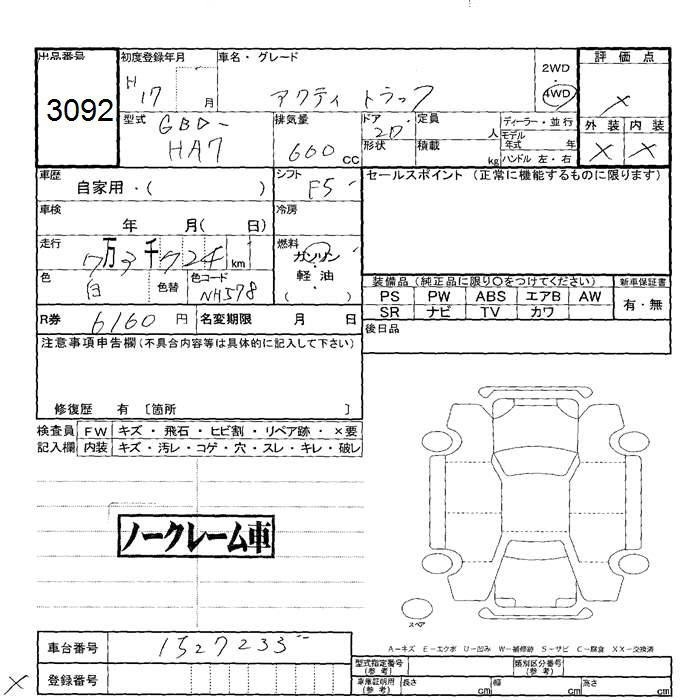 出品番号 初度登録年月 車名・グレード 2WD 評価点
3092 H17 月 アクティ トラック 4WD ×
型式 GBD-HA7 排気量 600 cc ドア 2D 定員 人 ディーラー・並行 外装 内装
形状 積載 kg モデル年式 年 × ×
ハンドル 左・右
車歴 自家用・( ) シフト F5 セールスポイント (正常に機能するものに限ります)
車検 年 月( 日) 冷房
走行 7万3千724km 燃料 ガソリン・軽油 ( )
色 白 色替 色コード NH578 装備品 (純正品に限り○をつけてください) 新車保証書
PS PW ABS エアB AW 有・無
SR ナビ TV カワ
R券 6160円 名変期限 月 日 後日品
注意事項申告欄(不具合内容等は具体的に記入して下さい)
修復歴 有 〔箇所 〕
検査員 FW キズ・飛石・ヒビ割・リペア跡・×要
記入欄 内装 キズ・汚レ・コゲ・穴・スレ・キレ・破レ
ノークレーム車
スペア
A-キズ E-エクボ U-凹み W-補修跡 S-サビ C-腐食 XX-交換済
車台番号 1527233 型式指定番号(参考) 類別区分番号(参考)
× 登録番号 車庫証明用(参考) 長さ cm 幅 cm 高さ cm